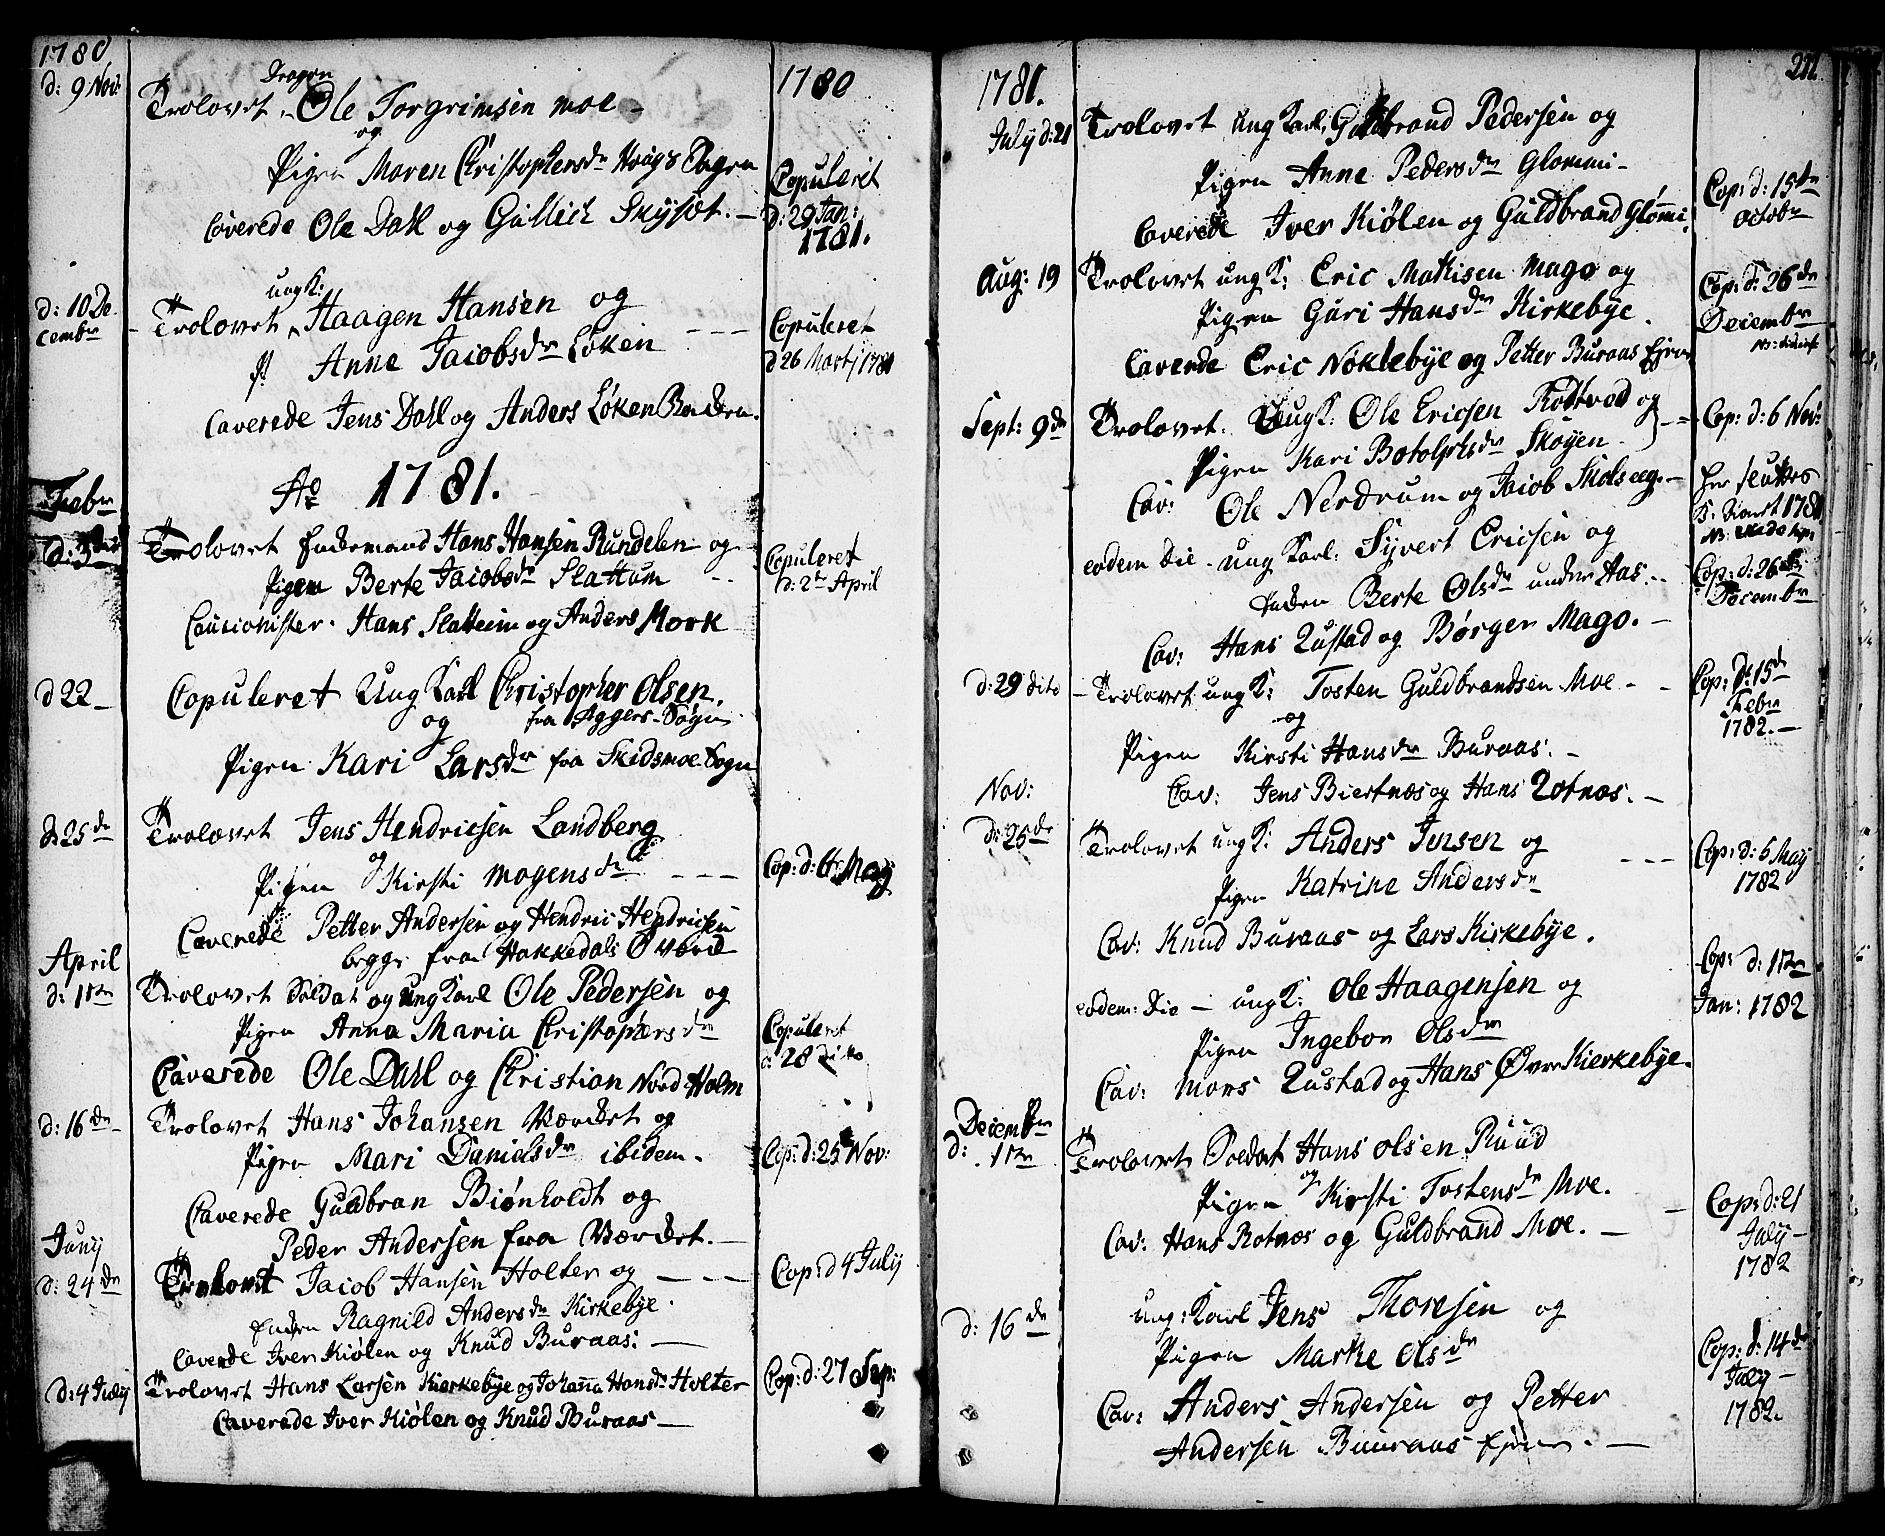 1780
d: 9 Nov:
Dragon
Trolovet Ole Torgrimsen moe
og
Pigen Maren Christophersdr Houg Sogn
Caverede Ole Dahl og Gullich Skyset.
1780
Copuleret
d: 29 Jan:
1781.
d: 10 De
cembr
ungK:
Trolovet Haagen Hansen og
P: Anne Jacobsdr Løken
Caverede Jens Dahl og Anders Løken
Copuleret
d 26 Martj 1781
Ao 1781.
Febr
Trolovet Enkemand Hans Hansen Rundelen og
Pigen Berte Jacobsdr Slattum
Causionister. Hans Slatteim og Anders Mork
Copuleret
d: 2den April
d 22
Copuleret Ung Karl Christopher Olsen.
og fra Aggers-Sogn
Pigen Kari Larsdr fra Skidsmoe Sogn
d: 25de
Trolovet Jens Hendricsen Landberg
og
Pigen Kirsti Mogensdr
Caverede Petter Andersen og Hendric Hendricsen
begge fra Hakkedals Værk
Cop: d: 4 May
April
d: 1ste
Trolovet Soldat og ung Karl Ole Pedersen og
Pigen Anna Maria Christophersdr
Caverede Ole Dahl og Christian Nord Holm
Copuleret
d: 28 Dito
d: 16de
Trolovet Hans Johansen Værket og
Pigen Mari Danielsdr ibidem.
Caverede Guldbran Biønholdt og
Peder Andersen fra Værket.
Cop: d: 25 Nov:
Juny
d: 24de
Trolovet Jacob Hansen Holter og
Enken Ragnild Andersdr Kirkebye.
Caverede Iver Kiølen og Knud Buraas.
Cop: d 4 July
d: 4 July
Trolovet Hans Larsen Kierkebye og Johanna Hansdr Holter
Caverede Iver Kiølen og Knud Buraas
Cop: d: 27 Sep:
1781.
July d: 21
Trolovet ung Karl. Guldbrand Pedersen og
Pigen Anne Pedersdr Glommi
Caverede Iver Kiølen og Guldbrand Glommi.
Cop: d: 15de
Octobr
Aug: 19
Trolovet ung K: Eric Mathisen Mago og
Pigen Guri Hansdr Kirkebye.
Caverede Eric Nøklebye og Petter Buraas
Cop: d: 26de
Decembr
Sept: 9de
Trolovet. ungK: Ole Ericsen Rødtved og
Pigen Kari Botolphsdr Skøyen
Cav: Ole Nerdrum og Jacob
Cop: d: 6 Nov:
eodem Die. ung Karl: Syvert Ericsen og
Enken Berte Olsdr under Aas.
Cav: Hans Rustad og Børger Mago.
Cop: d: 26de
Decembr
d: 29 dito
Trolovet ungK: Tosten Guldbrandsen Moe
og
Pigen Kirsti Hansdr Buraas.
Cav: Jens Biertnæs og Hans Rotnæs.
Cop: d: 15de
Febr
1782.
Nov:
d: 25de
Trolovet ungK: Anders Jensen og
Pigen Katrine Andersdr
Cav: Knud Buraas og Lars Kirkebye.
Cop: d: 5 May
1782
eodem: Die ungK: Ole Haagensen og
Pigen Ingebor Olsdr
Cav: Mons Rustad og Hans Øvre Kierkebye.
Cop: d: 1ste
Jan: 1782
Decembr
d: 1ste
Trolovet Soldat Hans Olsen Ruud
og
Pigen Kirsti Tostensdr Moe.
Cav: Hans Rotnæs og Guldbrand Moe.
Cop: d: 21
July
1782
d: 16de
ung: Karl Jens Thoresen og
Pigen Marte Olsdr
Cav: Anders Andersen og Petter
Andersen Buuraas
Cop: d: 14de
July
1782.